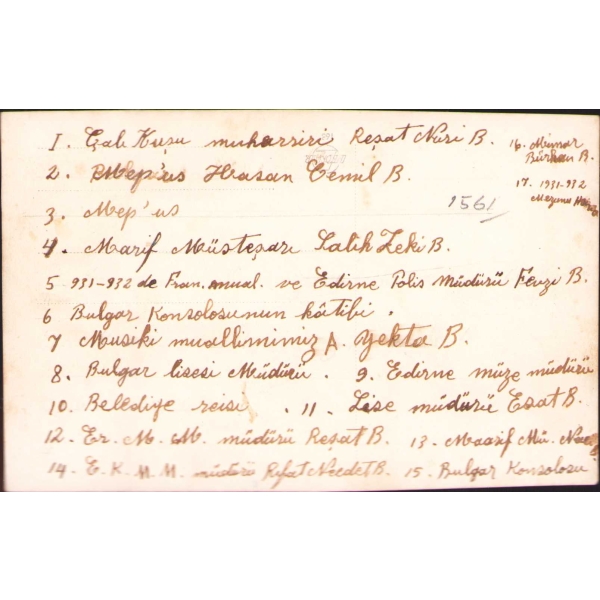 1. Çalı Kuşu muharriri Reşat Nuri B.
2. Mep'us Hasan Cemil B.
3. Mep'us
4. Marif Müsteşarı Salih Zeki B.
5 931-932 de Fran. mual. ve Edirne Polis müdürü Fevzi B.
6 Bulgar Konsolosunun kâtibi.
7 Musiki muallimimiz A. Yekta B.
8. Bulgar lisesi Müdürü. 9. Edirne müze müdürü
10. Belediye reisi. 11. Lise müdürü Esat B.
12. Er. M. M. müdürü Reşat B. 13. Maarif Mü.
14. E. K. M. M. müdürü Rıfat Necdet B. 15. Bulgar Konsolosu
16. Mimar
Burhan B.
17. 1931-932
Mezunu
1561